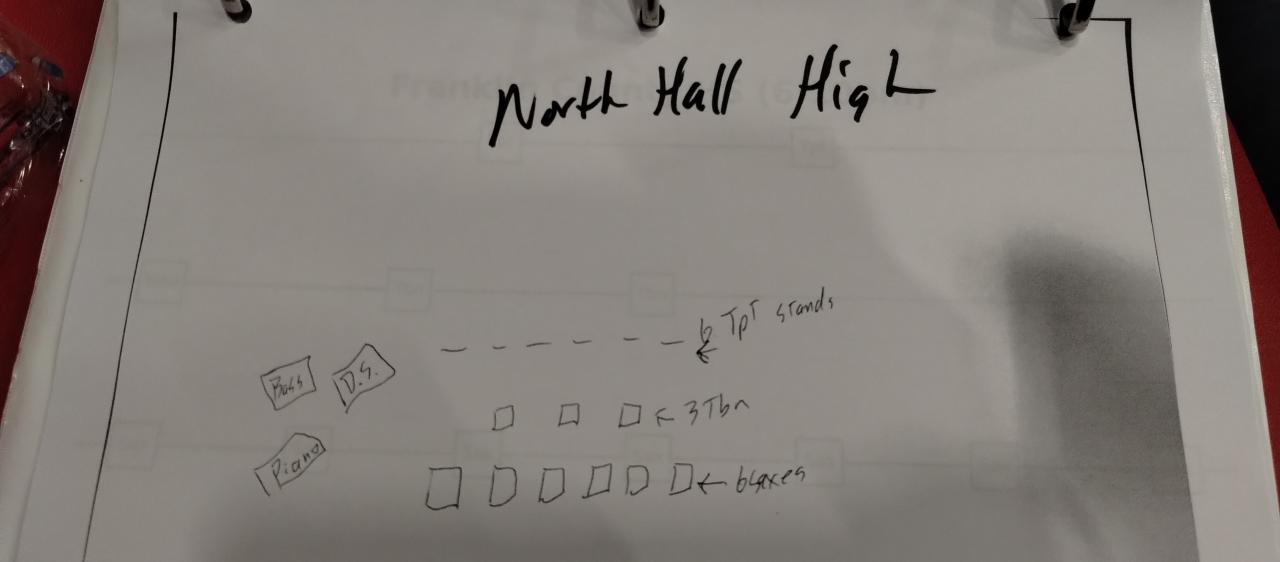 North Hall High
6 TpT stands
Bass
D.S.
3 Tbn
Piano
6 saxes